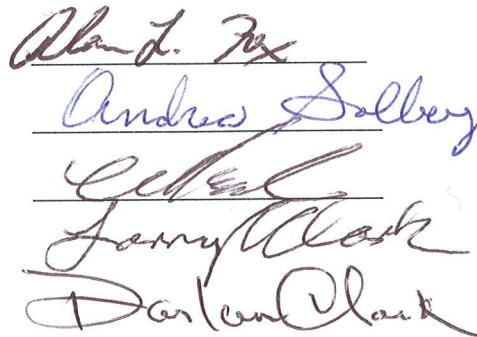 Alan L. Fox
Andrea Solberg
Larry Clark
Darlan Clark